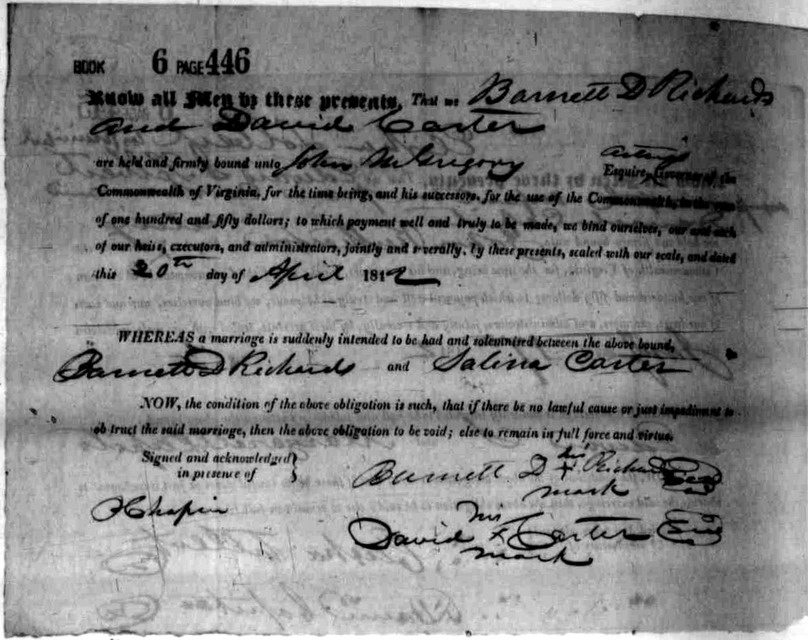 BOOK 6 PAGE 446
Know all Men by these presents, That we Barnett D Richards
and David Carter
are held and firmly bound unto John M Gregory Esquire, acting Governor of the
Commonwealth of Virginia, for the time being, and his successors, for the use of the Commonwealth, in the sum
of one hundred and fifty dollars; to which payment well and truly to be made, we bind ourselves, our and each
of our heiss, executors, and administrators, jointly and s verally, by these presents, sealed with our seals, and dated
this 20th day of April 1842
WHEREAS a marriage is suddenly intended to be had and solemnised between the above bound,
Barnett D Richards and Salina Carter
NOW, the condition of the above obligation is such, that if there be no lawful cause or just impediment to
ob truct the said marriage, then the above obligation to be void; else to remain in full force and virtue.
Signed and acknowledged
in presence of
Barnett D his x Richards Seal
mark
Chapin
his
David x Carter Seal
mark